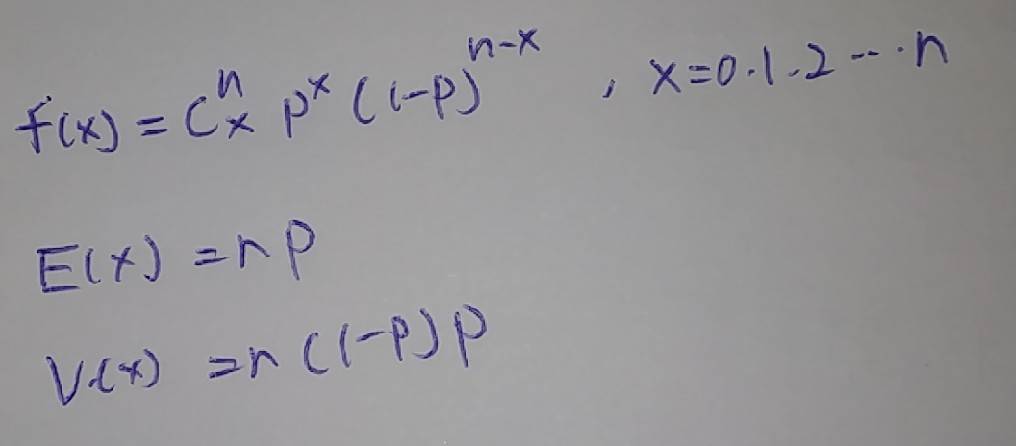 f(x) = Cₓⁿ pˣ (1-p)ⁿ⁻ˣ , x=0.1.2 --- n
E(x) = n p
V(x) = n (1-p) p